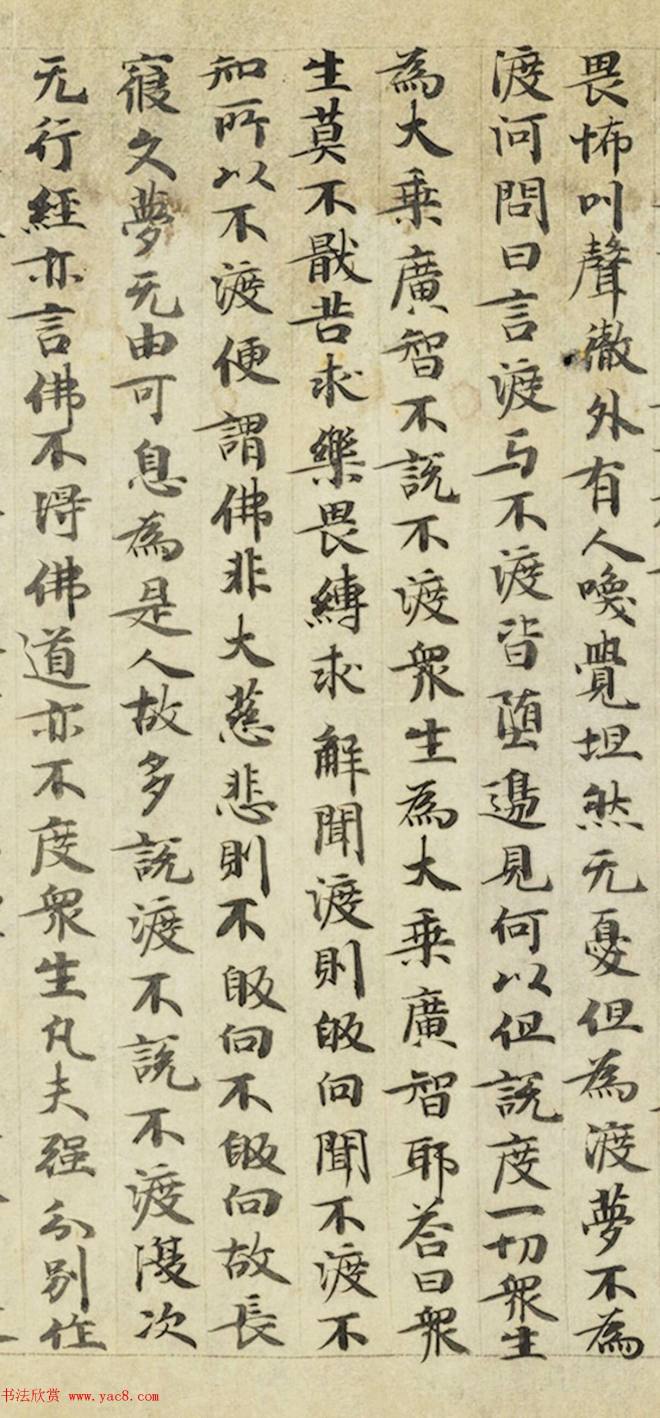 畏怖叫聲徹外有人喚覺坦然无憂但為渡夢不為
渡河問曰言渡与不渡皆堕邊見何以但說度一切衆生
為大乘廣智不說不渡衆生為大乘廣智耶答曰衆
生莫不猒苦求樂畏縛求解聞渡則皈向聞不渡不
知所以不渡便謂佛非大慈悲則不皈向不皈向故長
寢久夢无由可息為是人故多說渡不說不渡澓次
无行經亦言佛不得佛道亦不度衆生凡夫强分別作
书法欣赏 www.yac8.com